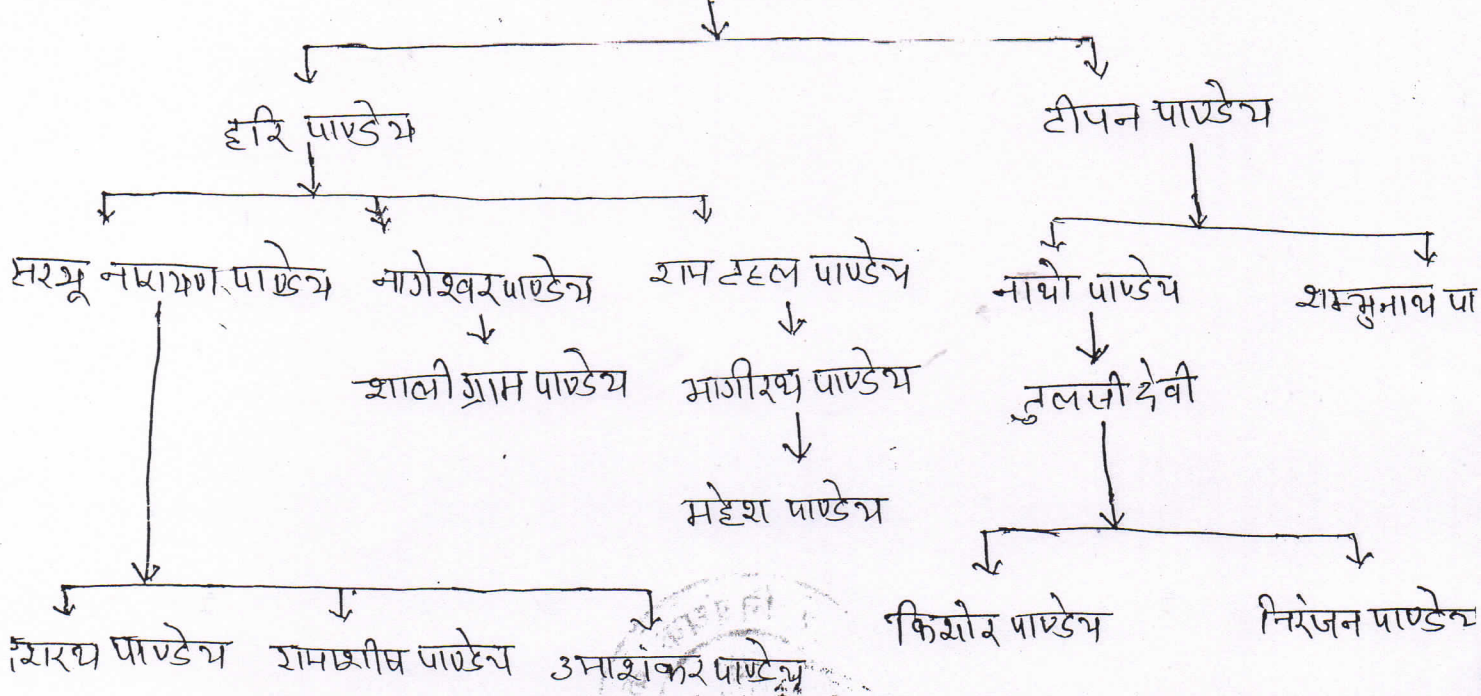 हरि पाण्डेय टीपन पाण्डेय
सरयू नारायण पाण्डेय नागेश्वर पाण्डेय राम टहल पाण्डेय नाथो पाण्डेय शम्भुनाथ पा
शाली ग्राम पाण्डेय भागीरथ पाण्डेय तुलसी देवी
महेश पाण्डेय
किशोर पाण्डेय निरंजन पाण्डेय
पाण्डेय रामाशीष पाण्डेय उमाशंकर पाण्डेय